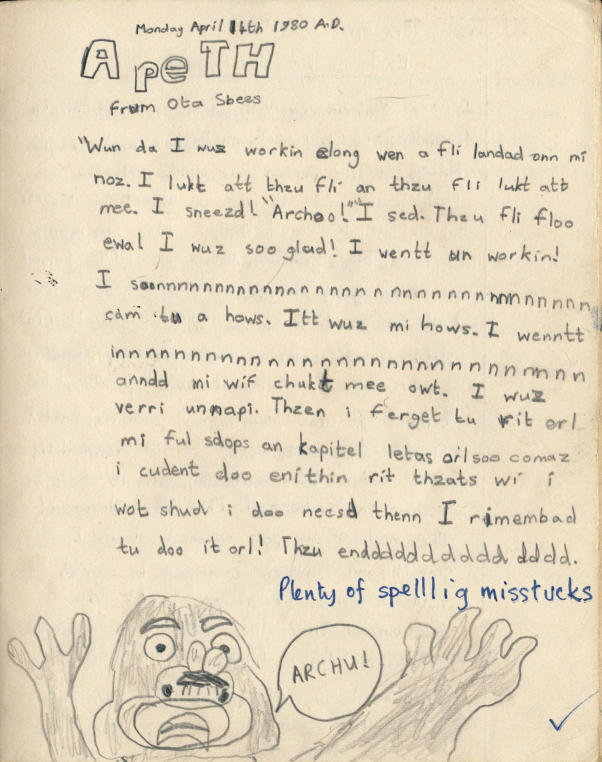 Monday April 14th 1980 A.D.
ApeTH
from Ota Sbees
"Wun da I wuz workin elong wen a fli landad onn mi
noz. I lukt att thzu fli an thzu fli lukt att
mee. I sneezd! "Archoo!" I sed. Thzu fli floo
ewai I wuz soo glad! I wentt un workin!
I soonnnnnnnnnnnnnnnnnnnnnnnnnnn
cam tu a hows. Itt wuz mi hows. I wenntt
innnnnnnnnnnnnnnnnnnnnnnnn
anndd mi wif chukt mee owt. I wuz
verri unnapi. Thzen i ferget tu rit orl
mi ful sdops an kapitel letas orlsoo comaz
i cudent doo enithin rit thzats wi i
wot shud i doo necsd thenn I rimembad
tu doo it orl! Thzu enddddddddddddd.
Plenty of spelllig misstucks
ARCHU!